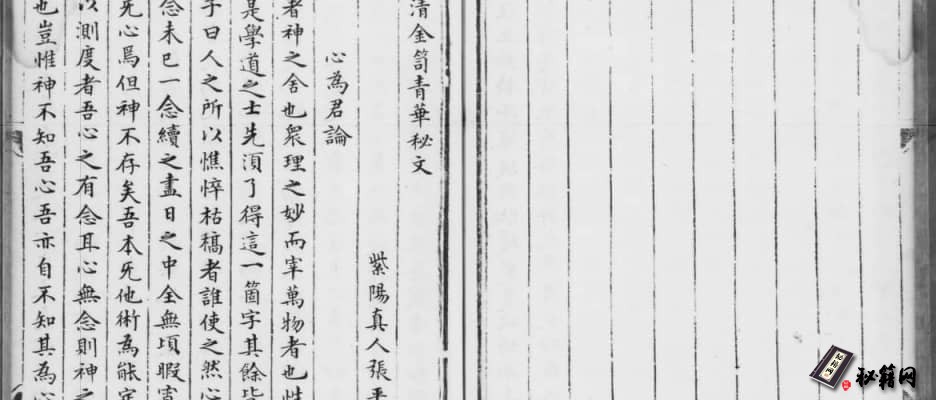 清金笥青華秘文
紫陽真人張平
心為君論
者神之舍也衆理之妙而宰萬物者也性
是學道之士先須了得這一箇字其餘皆
子曰人之所以憔悴枯槁者誰使之然心
念未已一念續之盡日之中全無頃暇寄
死心焉但神不存矣吾本死他術為能定
以測度者吾心之有念耳心無念則神之
也豈惟神不知吾心吾亦自不知其為心
秘籍网